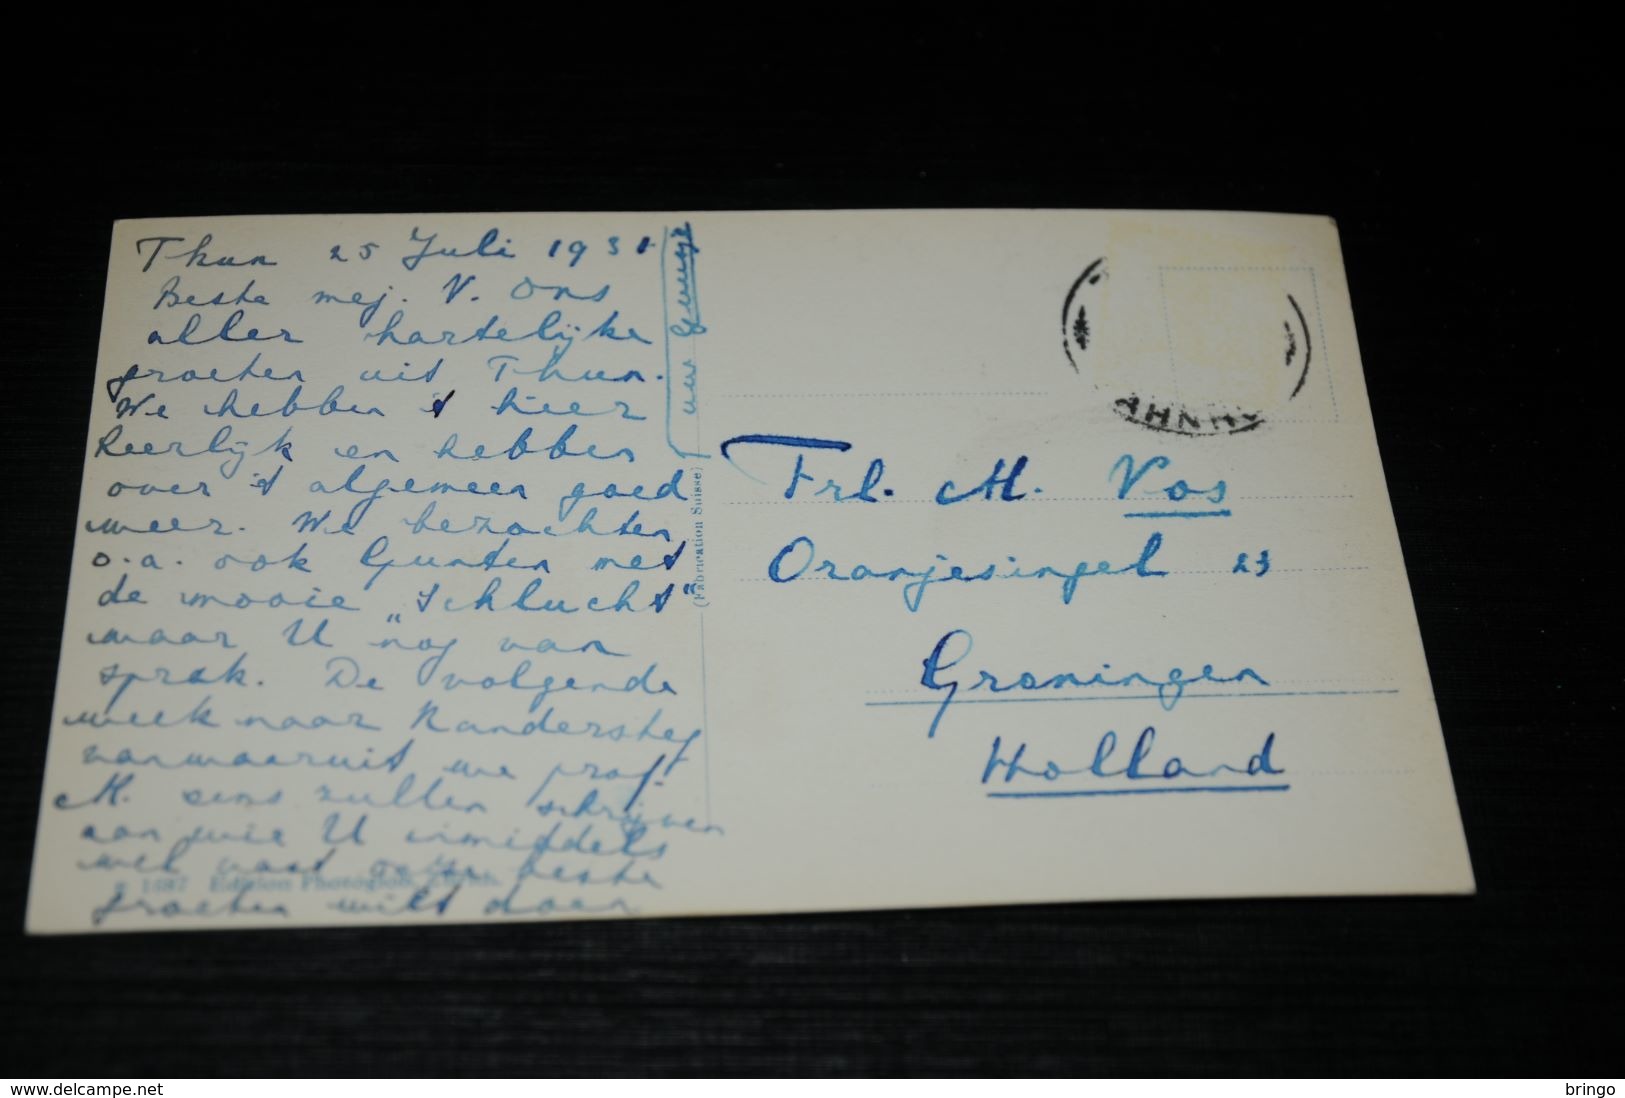 Thun 25 Juli 1931
Beste mej. V. Ons
aller hartelijke
groeten uit Thun.
We hebben 't hier
heerlijk en hebben
over 't algemeen goed
weer. We bezochten
o.a. ook Gunten met
de mooie „Schlucht"
waar U nog van
sprak. De volgende
week naar Kandersteg
vanwaaruit we prof.
M. eens zullen schrijven
aan wie U inmiddels
wel vast onze beste
groeten wilt doen
uw Guusje
(Fabrication Suisse)
1587 Edition Photoglob, Zürich.
Frl. M. Vos
Oranjesingel 23
Groningen
Holland
delcampe.net
bringo